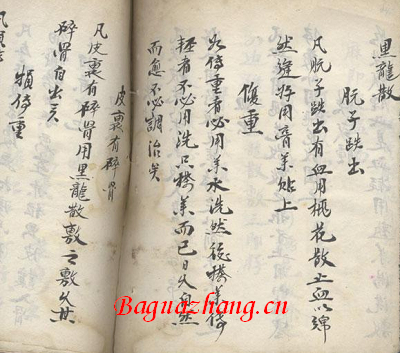 黑龍散
脘子跌出
凡脘子跌出有血用桃花散止血以綿
然後好用膏藥貼上
傷重
凡傷重者必用藥水洗然後搽藥傷
輕者不必用洗只搽藥而已日久自然
而愈不必調治矣
皮裏有碎骨
凡皮裏有碎骨用黑龍散敷之敷久其
碎骨自出矣
損傷重
Baguazhang.cn